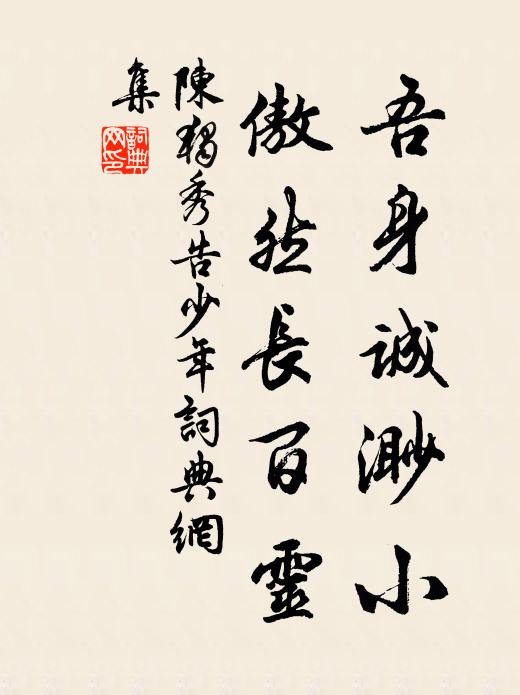 吾身誠渺小
傲然長百靈
陳獨秀告少年詞典網
集
詞典
網印